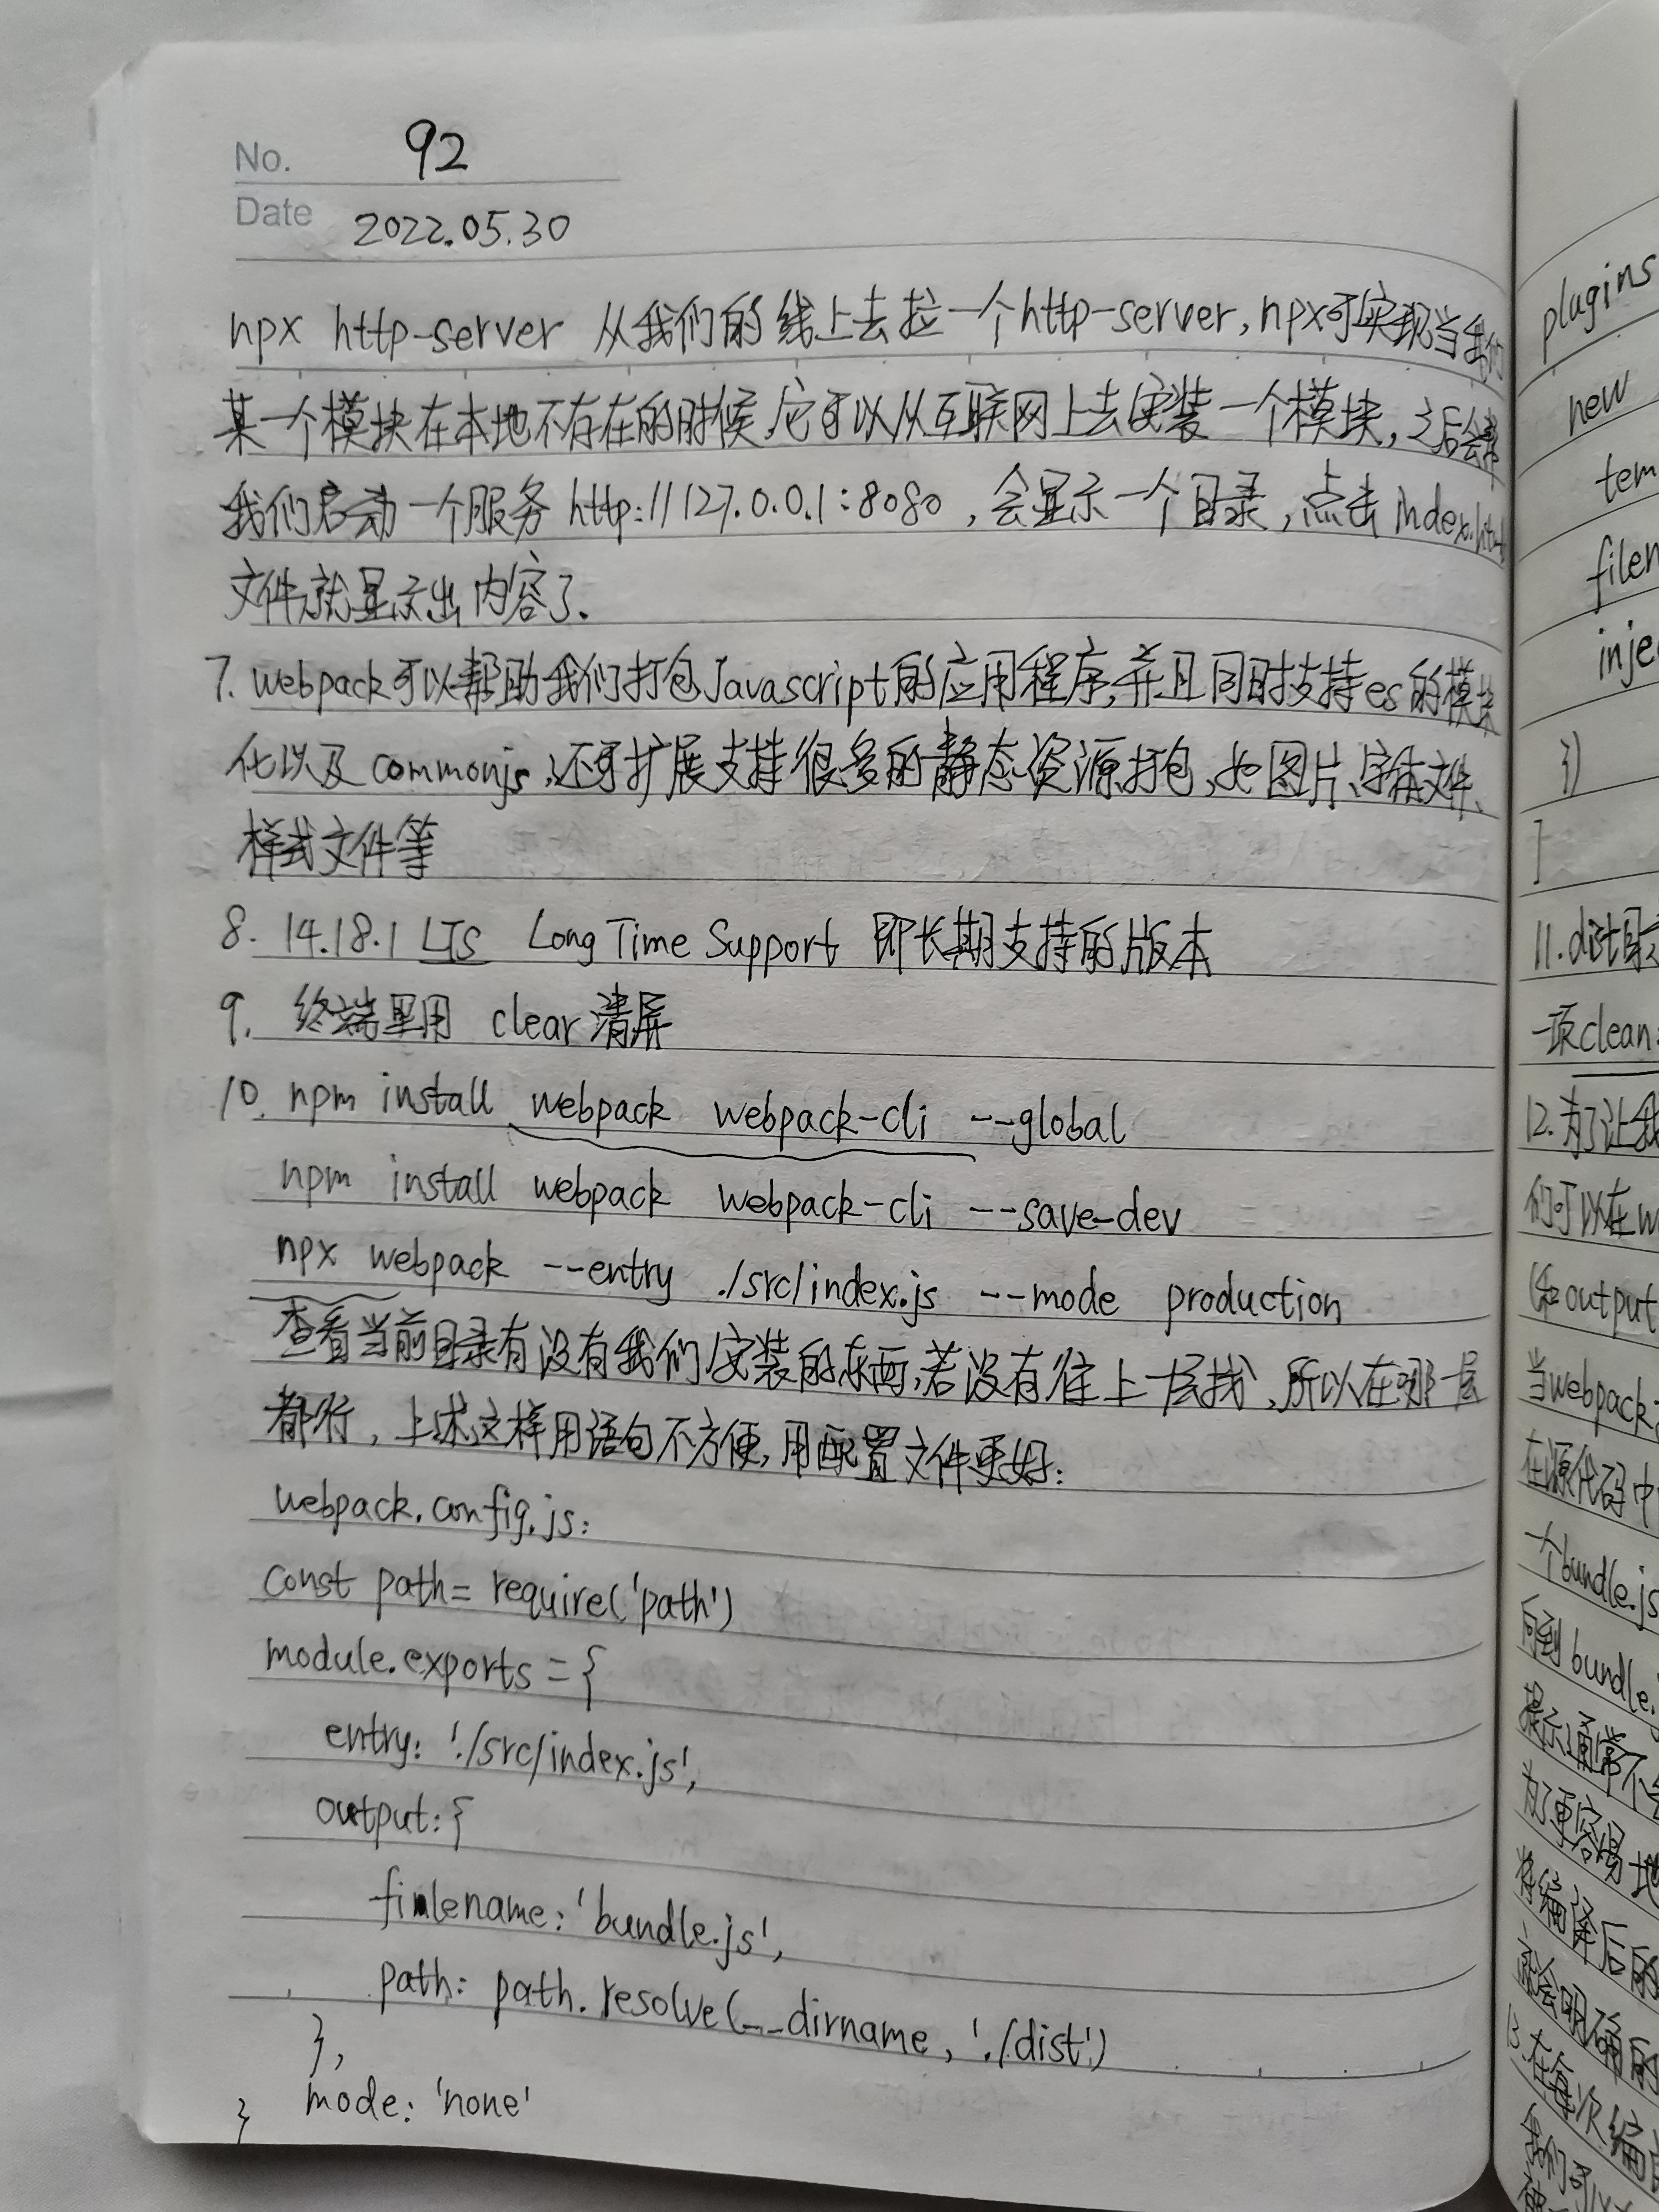 No. 92
Date 2022.05.30
npx http-server 从我们的线上去拉一个http-server,npx可实现当我们
某一个模块在本地不存在的时候,它可以从互联网上去安装一个模块,之后会帮
我们启动一个服务 http://127.0.0.1:8080 ,会显示一个目录,点击index.html
文件就显示出内容了.
7. webpack可以帮助我们打包Javascript的应用程序,并且同时支持es的模块
化以及commonjs,还可扩展支持很多的静态资源打包,如图片、字体文件、
样式文件等
8. 14.18.1 LTS Long Time Support 即长期支持的版本
9. 终端里用 clear清屏
10. npm install webpack webpack-cli --global
npm install webpack webpack-cli --save-dev
npx webpack --entry ./src/index.js --mode production
查看当前目录有没有我们安装的东西,若没有往上一层找,所以在哪一层
都行,上述这样用语句不方便,用配置文件更好:
webpack.config.js:
const path= require('path')
module.exports = {
entry: './src/index.js',
output: {
filename: 'bundle.js',
path: path.resolve(__dirname, './dist')
},
mode: 'none'
}
plugins
new
tem
filen
inje
})
]
11.dist目录
一项clean:
12.为了让我
们可以在w
(如output
当webpack
在源代码中
一个bundle.js
向到bundle.
提示通常不
为了更容易地
将编译后的
就会明确的
13.在每次编
我们可以